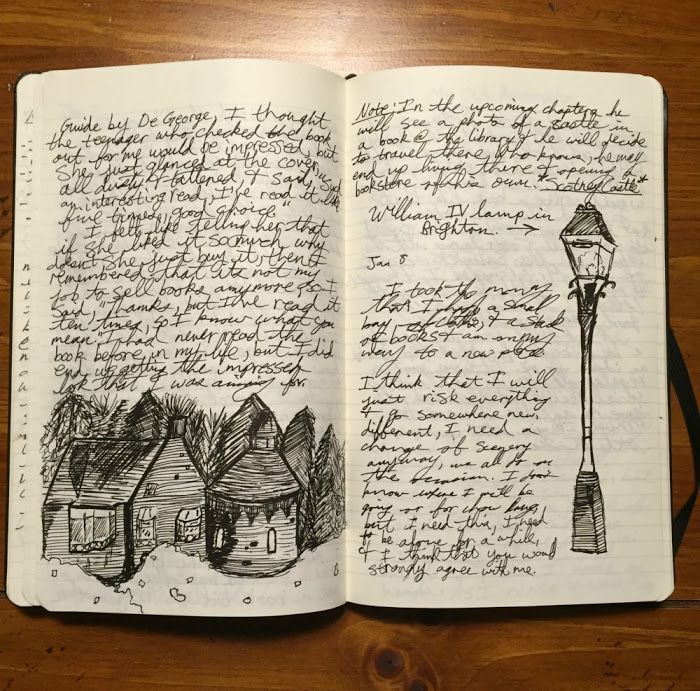 Guide by De George, I thought
the teenager who checked the book
out for me would be impressed, but
she just glanced at the cover,
all dusty & tattered & said, "Such
an interesting read, I've read it
five times, good choice."
I felt like telling her that
if she liked it so much why
doesn't she just buy it, then I
remembered that its not my
job to sell books anymore so I
said, "Thanks, but I've read it
ten times, so I know what you
mean." I had never read the
book before in my life, but I did
end up getting the impressed
look that I was aiming for.
Note: In the upcoming chapters he
will see a photo of a castle in
a book @ the library & he will decide
to travel there, who knows, he may
end up living there & opening a
bookstore of his own. *Scotney Castle*
William IV lamp in
Brighton. →
Jan 8
I took the money
that I had, a small
bag, of clothes, & a stack
of books & am on my
way to a new place.
I think that I will
just risk everything
& go somewhere new,
different, I need a
change of scenery
anyway, we all do on
the occasion. I don't
know where I will be
going or for how long,
but I need this, I need
to be alone for a while,
& I think that you would
strongly agree with me.